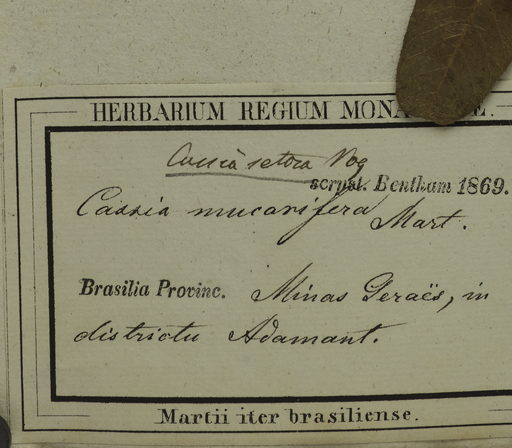 HERBARIUM REGIUM MONA E.
Cassia setosa Vog
scrpst. Bentham 1869.
Cassia mucanifera Mart.
Brasilia Provinc. Minas Geraës, in
districtu Adamant.
Martii iter brasiliense.